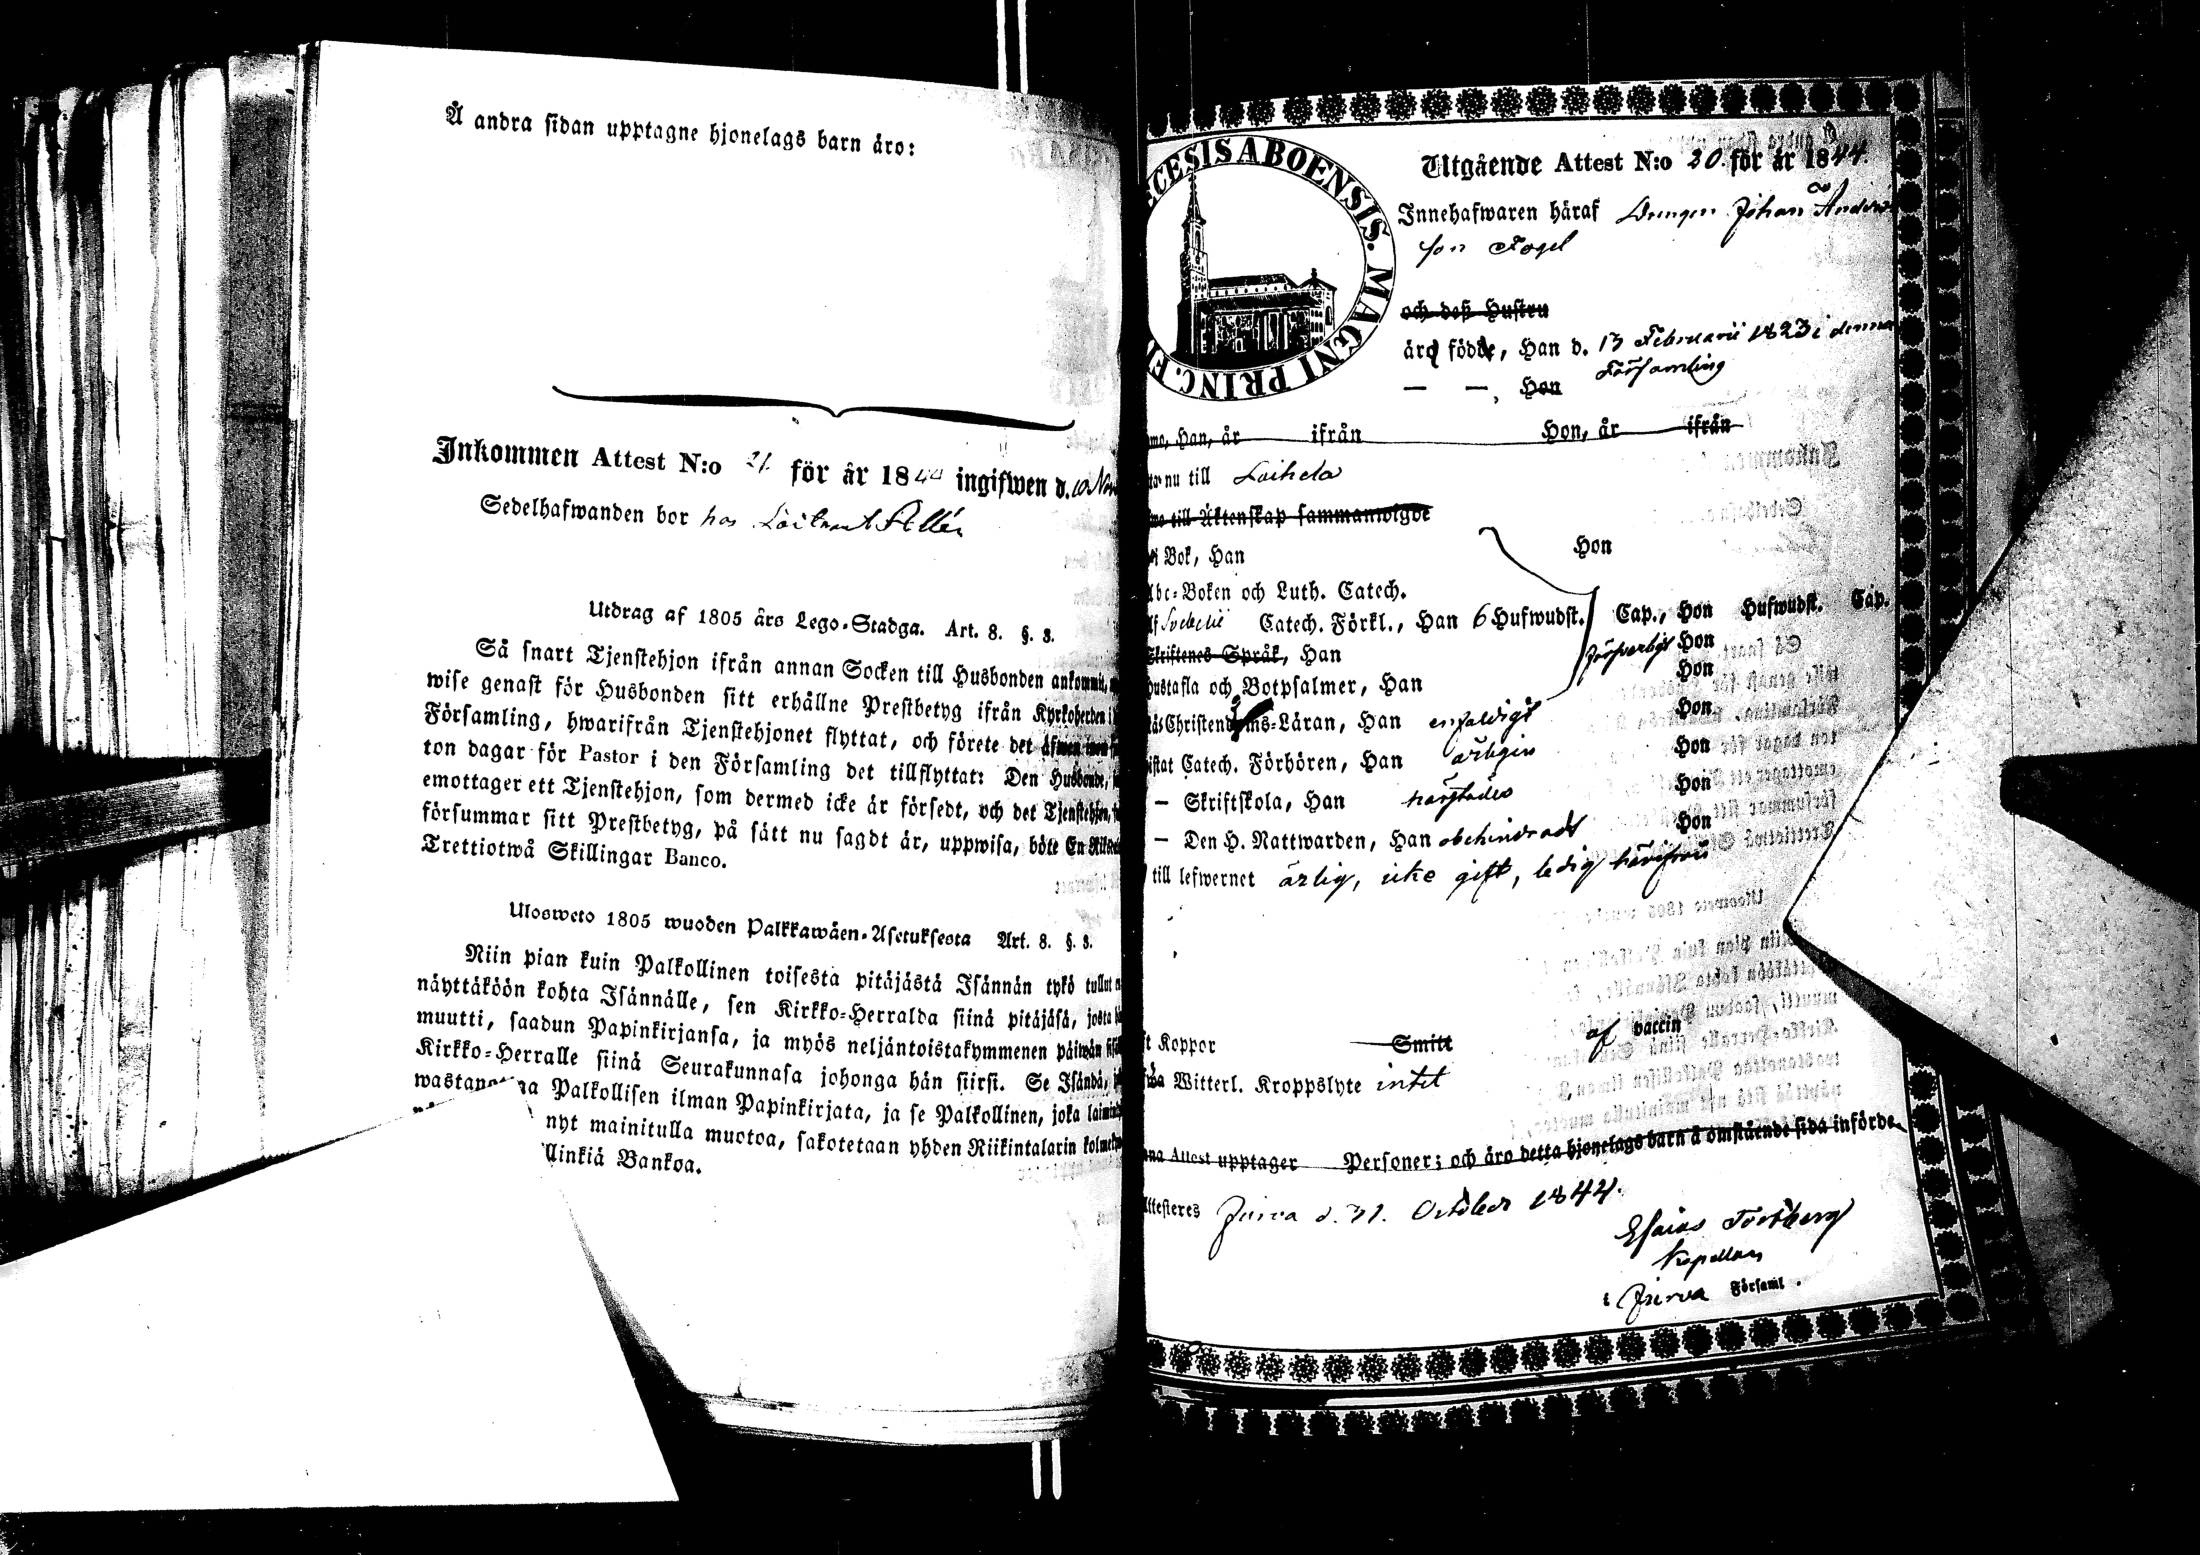 Å andra sidan upptagne hjonelags barn äro:
Inkommen Attest N:o 21 för år 1844 ingifwen d. 10 Nov
Sedelhafwanden bor hos
Utdrag af 1805 års Lego-Stadga. Art. 8. §. 3.
Så snart Tjenstehjon ifrån annan Socken till Husbonden ankommit,
wise genast för Husbonden sitt erhållne Prestbetyg ifrån Kyrkoherden i
Församling, hwarifrån Tjenstehjonet flyttat, och förete det äfwen inom
ton dagar för Pastor i den Församling det tillflyttat: Den Husbonde,
emottager ett Tjenstehjon, som dermed icke är försedt, och det Tjenstehjon,
försummar sitt Prestbetyg, på sätt nu sagdt är, uppwisa, böte En
Trettiotwå Skillingar Banco.
Ulosweto 1805 wuoden Palkkawäen-Asetuksesta Art. 8. §. 3.
Niin pian kuin Palkollinen toisesta pitäjästä Isännän tykö tullut
näyttäköön kohta Isännälle, sen Kirkko-Herralda siinä pitäjäsä, josta
muutti, saadun Papinkirjansa, ja myös neljäntoistakymmenen päiwän
Kirkko-Herralle siinä Seurakunnasa johonga hän siirsi. Se Isändä,
Palkollisen ilman Papinkirjata, ja se Palkollinen, joka
nyt mainitulla muotoa, sakotetaan yhden Riikintalarin
llinkiä Bankoa.
CESIS ABOENSIS. MAGNI PRINC. FI
Utgående Attest N:o 20. för år 1844.
Innehafwaren häraf Drengen Johan Anders
son Fogel
och deß Hustru
äro födde, Han d. 13 Februarii 1823 i denna
Församling
— —, Hon
Han, år ifrån Hon, år ifrån
nu till Laihela
till Äktenskap sammanwigde
i Bok, Han Hon
Abc-Boken och Luth. Catech.
Svebelii Catech. Förkl., Han 6 Hufwudst. Cap., Hon Hufwudst. Cap.
Skriftenes Språk, Han försvarligt Hon
Hustafla och Botpsalmer, Han Hon
Christendoms-Läran, Han enfaldigt Hon
Catech. Förhören, Han årligen Hon
— Skriftskola, Han härstädes Hon
— Den H. Nattwarden, Han obehindradt Hon
till lefwernet ärlig, icke gift, ledig härifrån
Koppor Smitt af vaccin
Witterl. Kroppslyte intet
Attest upptager Personer; och äro detta hjonelags barn å omstående sida införde.
Attesteres Jurva d. 31. October 1844.
Esaias Forsberg
Kapellan
i Jurva Församl.